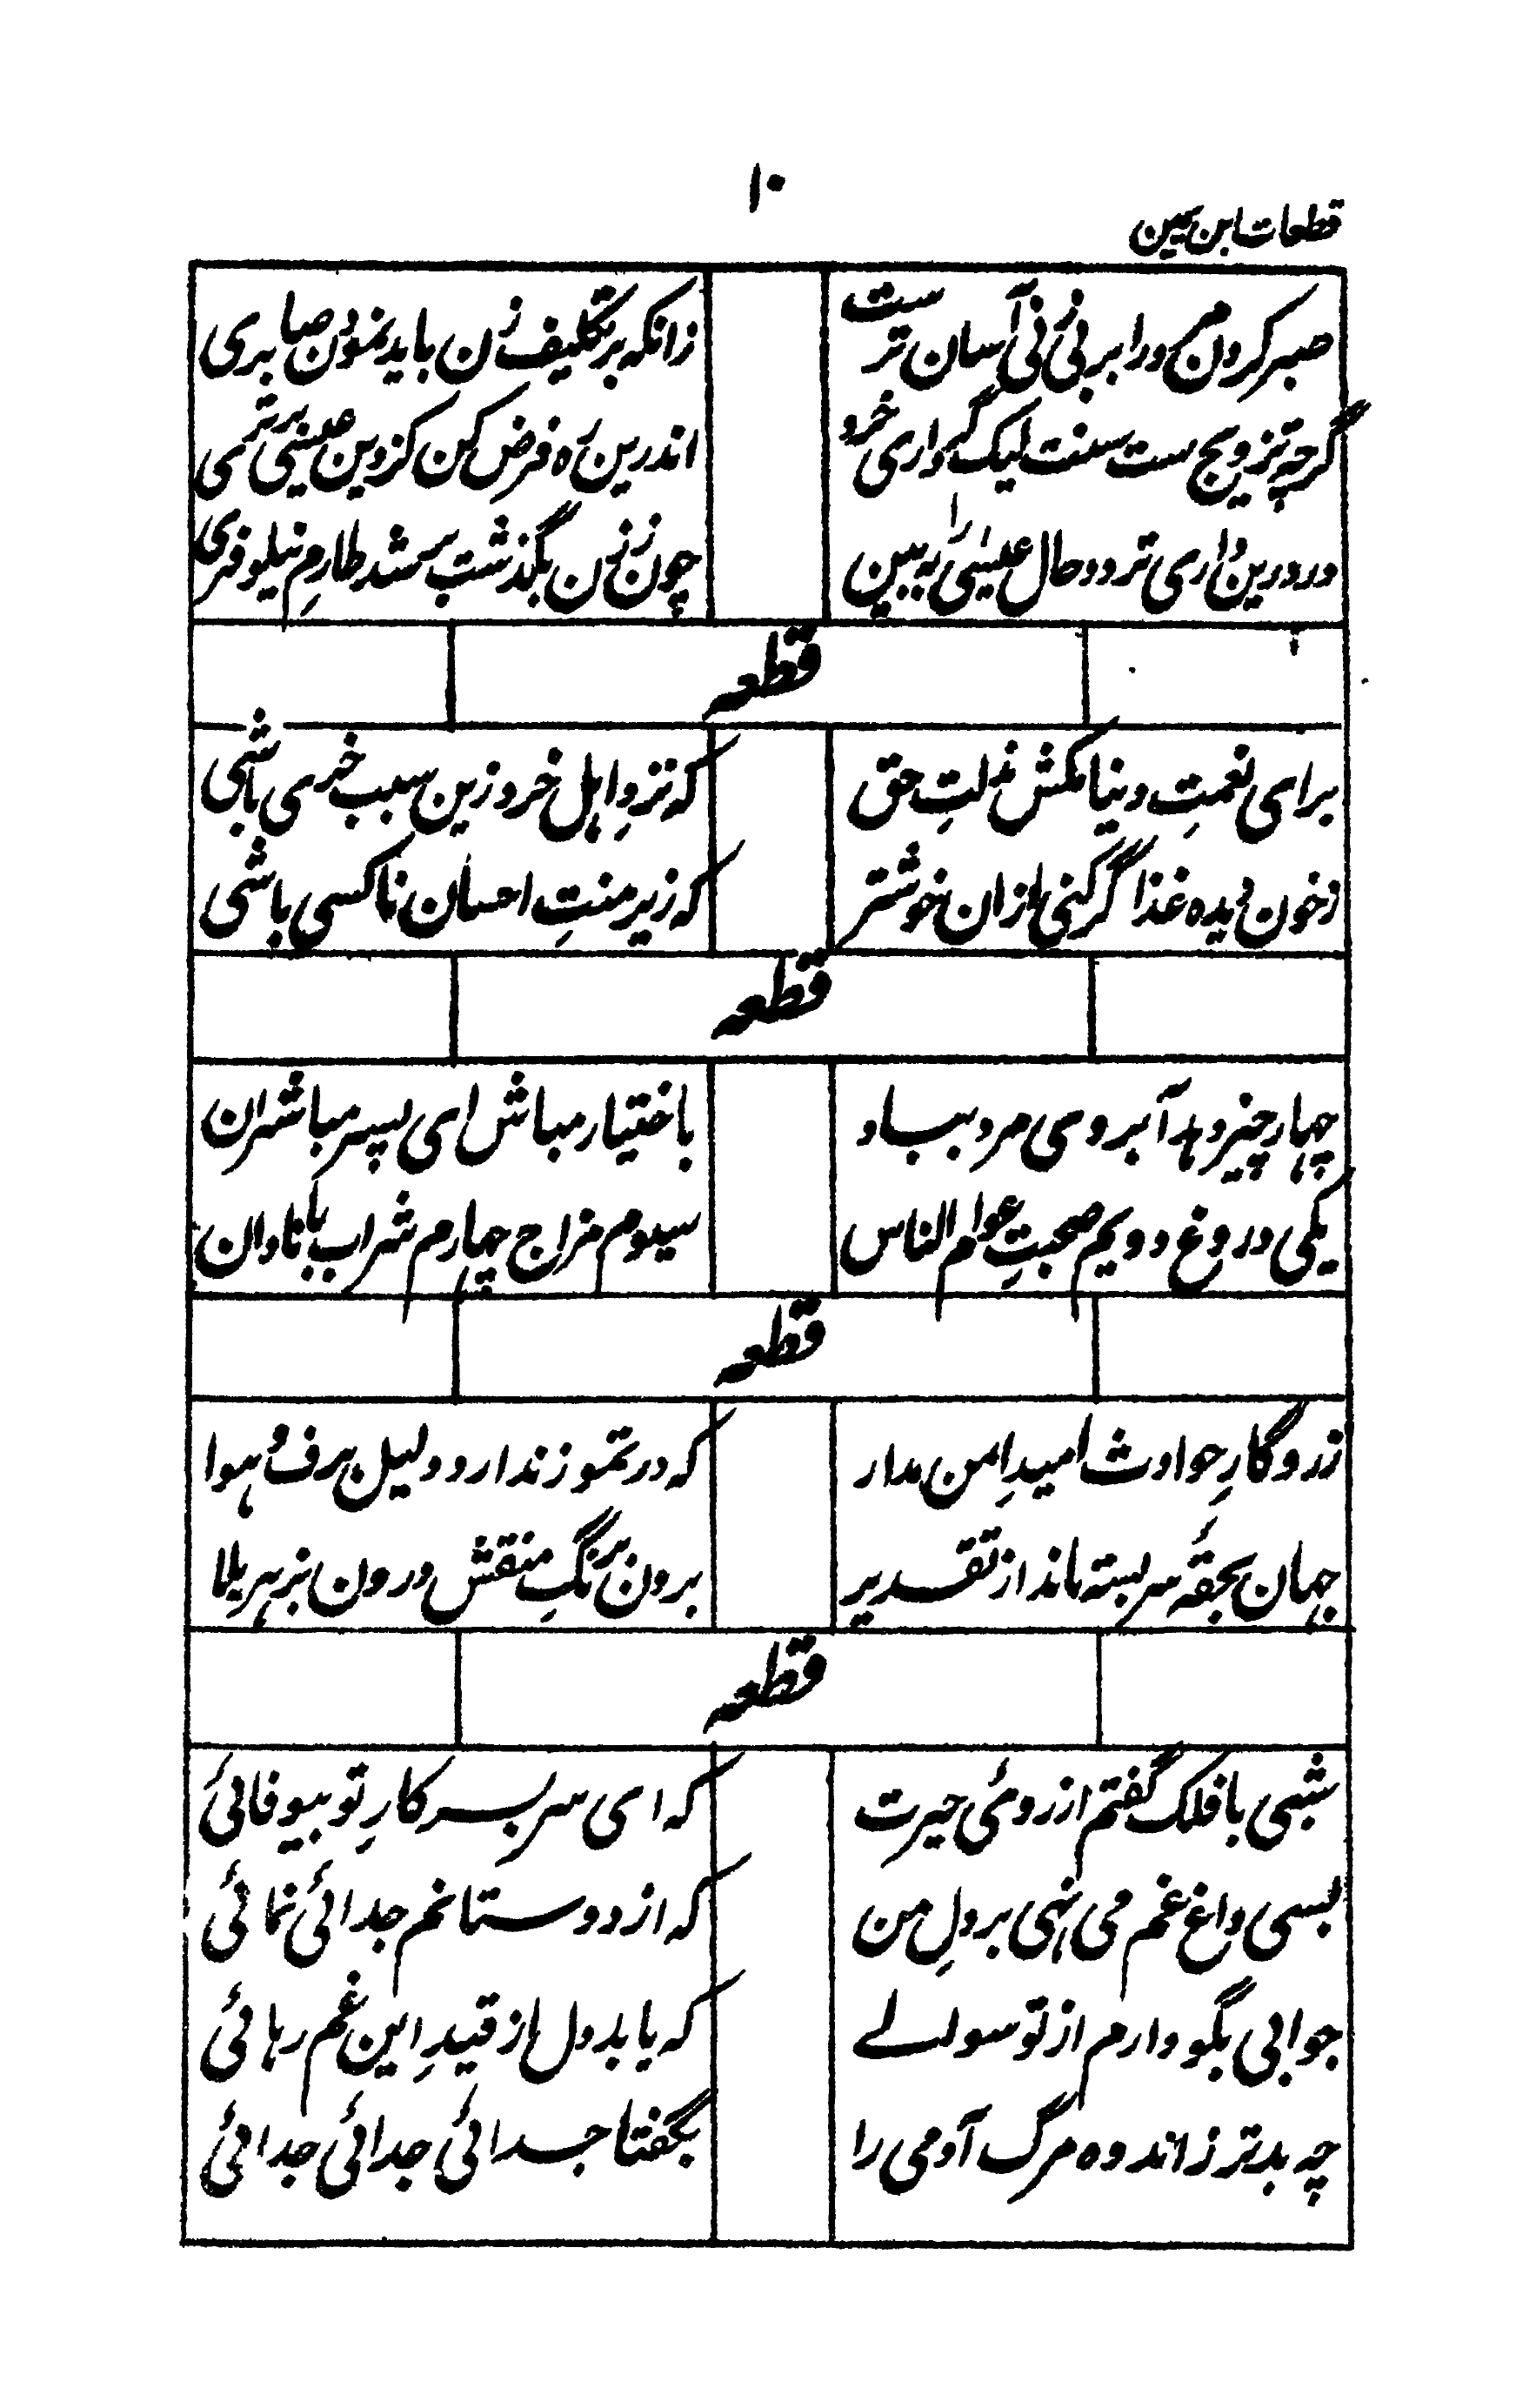 ۱۰
قطعات ابن یمین
صبر کردن مر ورا بر بی زنی آسان ترست زانکه بر تکلیف زن باید نمودن صابری
گرچه تزویج ست سنت لیک گر داری خرد اندرین ره فرض کن کز دین عیسی برتری
ور درین داری تردد حال عیسی را به بین چون ز زن بگذشت شد طارمِ نیلوفری
قطعه
برای نعمتِ دنیا مکش مذلتِ حق که نزدِ اهل خرد زین سبب خسی باشی
ز خون دیده غذا گر کنی ازان خوشتر که زیر منتِ احسان ناکسی باشی
قطعه
چهار چیز دهد آبروی مرد بباد باختیار مباش ای پسر مباشر ان
یکی دروغ دویم صحبتِ عوام الناس سیوم مزاج چهارم شراب با نادان
قطعه
ز روزگارِ حوادث امیدِ امن مدار که در تموز ندارد دلیل برف هوا
جهان بحقهٔ سر بسته ماند از تقدیر برون برنگِ منقش درون بزهر بلا
قطعه
شبی با فلک گفتم از روئی حیرت که ای سر بسر کارِ تو بیوفائی
بسی داغ غم می نهی بر دلِ من که از دوستانم جدائی نمائی
جوابی بگو دارم از تو سوالے که یابد دل از قیدِ این غم رهائی
چه بدتر ز اندوه مرگ آدمی را بگفتا جدائی جدائی جدائی